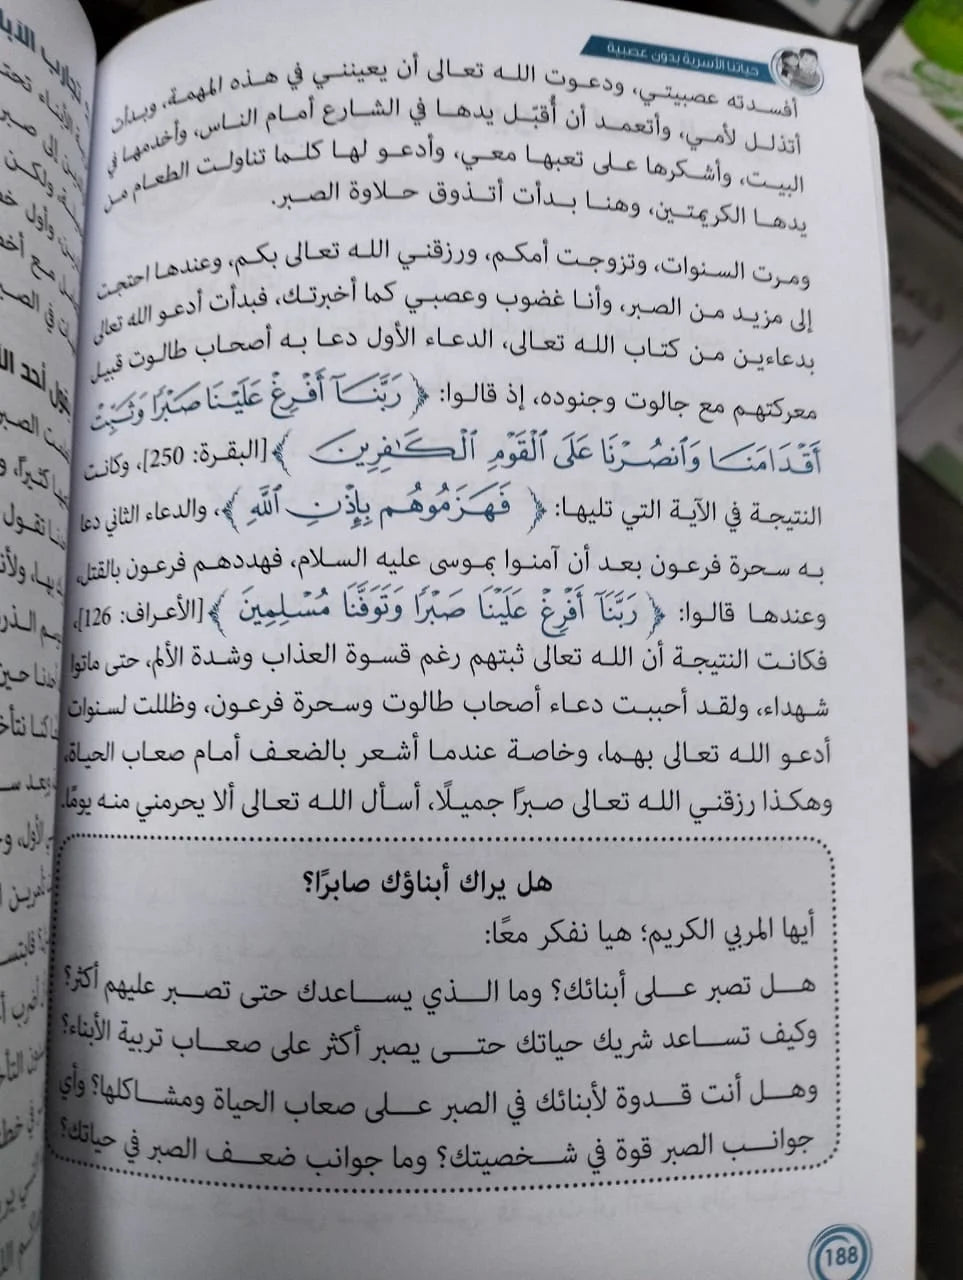 حياتنا الأسرية بدون عصبية
أفسدته عصبيتي، ودعوت الله تعالى أن يعينني في هذه المهمة، وبدأت
أتذلل لأمي، وأتعمد أن أُقبّل يدها في الشارع أمام الناس، وأخدمها في
البيت، وأشكرها على تعبها معي، وأدعو لها كلما تناولت الطعام من
يدها الكريمتين، وهنا بدأت أتذوق حلاوة الصبر.
ومرت السنوات، وتزوجت أمكم، ورزقني الله تعالى بكم، وعندها احتجت
إلى مزيد من الصبر، وأنا غضوب وعصبي كما أخبرتك، فبدأت أدعو الله تعالى
بدعاءين من كتاب الله تعالى، الدعاء الأول دعا به أصحاب طالوت قبيل
معركتهم مع جالوت وجنوده، إذ قالوا: ﴿ رَبَّنَآ أَفْرِغْ عَلَيْنَا صَبْرًا وَثَبِّتْ
أَقْدَامَنَا وَٱنصُرْنَا عَلَى ٱلْقَوْمِ ٱلْكَٰفِرِينَ ﴾ [البقرة: 250]، وكانت
النتيجة في الآية التي تليها: ﴿ فَهَزَمُوهُم بِإِذْنِ ٱللَّهِ ﴾، والدعاء الثاني دعا
به سحرة فرعون بعد أن آمنوا بموسى عليه السلام، فهددهم فرعون بالقتل،
وعندها قالوا: ﴿ رَبَّنَآ أَفْرِغْ عَلَيْنَا صَبْرًا وَتَوَفَّنَا مُسْلِمِينَ ﴾ [الأعراف: 126]،
فكانت النتيجة أن الله تعالى ثبتهم رغم قسوة العذاب وشدة الألم، حتى ماتوا
شهداء، ولقد أحببت دعاء أصحاب طالوت وسحرة فرعون، وظللت لسنوات
أدعو الله تعالى بهما، وخاصة عندما أشعر بالضعف أمام صعاب الحياة،
وهكذا رزقني الله تعالى صبرًا جميلًا، أسأل الله تعالى ألا يحرمني منه يومًا.
هل يراك أبناؤك صابرًا؟
أيها المربي الكريم؛ هيا نفكر معًا:
هل تصبر على أبنائك؟ وما الذي يساعدك حتى تصبر عليهم أكثر؟
وكيف تساعد شريك حياتك حتى يصبر أكثر على صعاب تربية الأبناء؟
وهل أنت قدوة لأبنائك في الصبر على صعاب الحياة ومشاكلها؟ وأي
جوانب الصبر قوة في شخصيتك؟ وما جوانب ضعف الصبر في حياتك؟
188